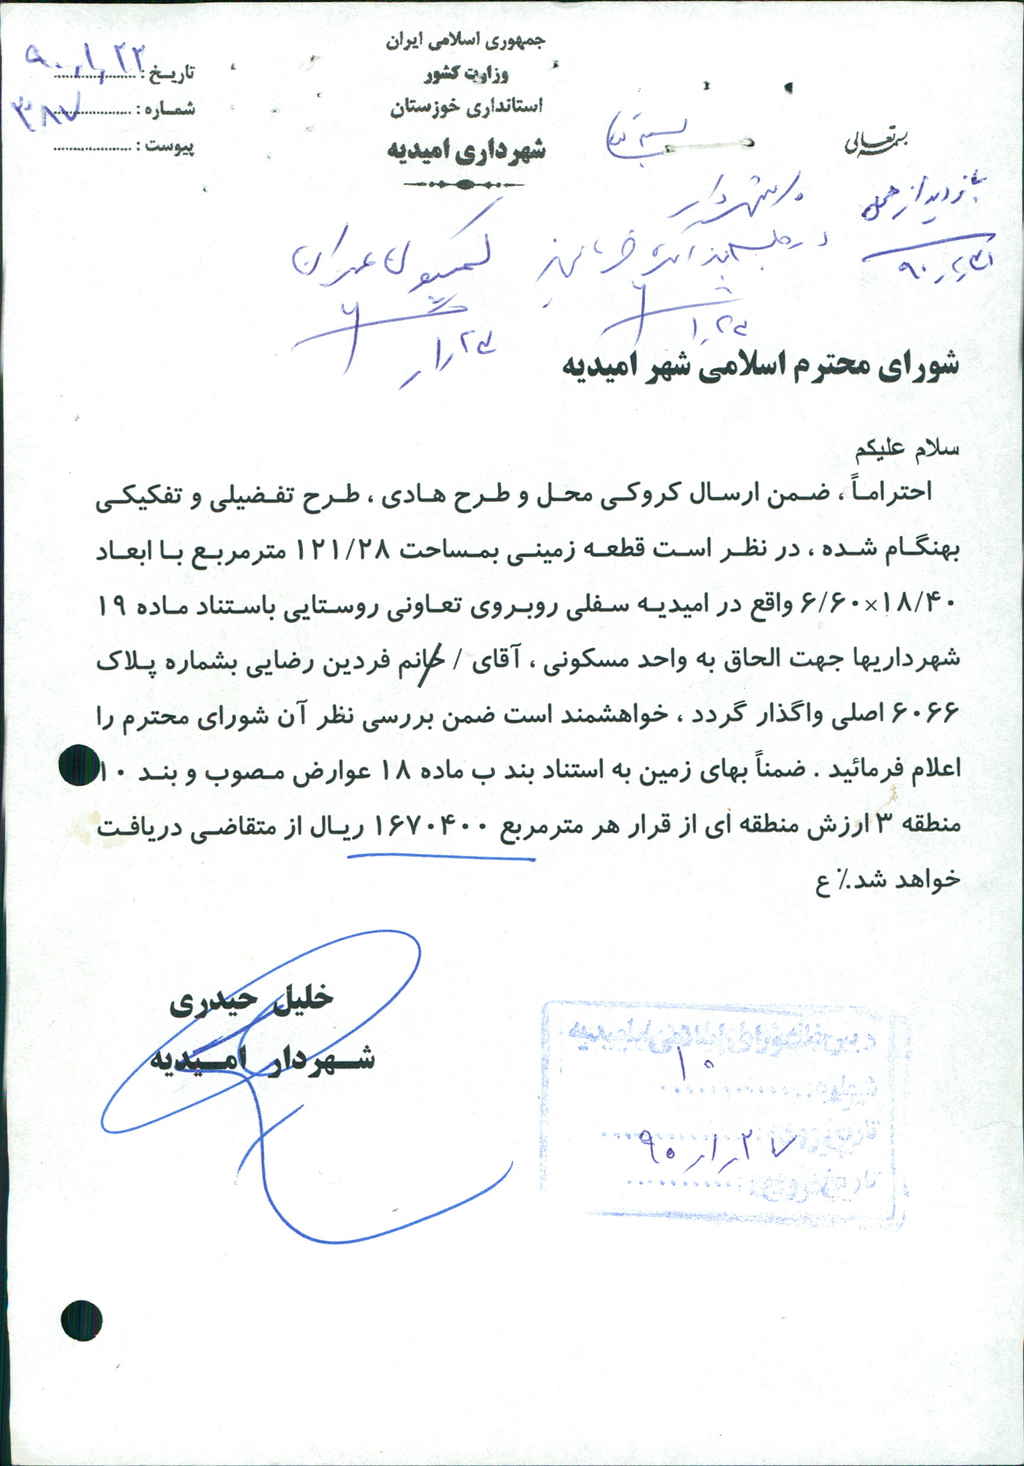 جمهوری اسلامی ایران
وزارت کشور
استانداری خوزستان
شهرداری امیدیه
تاریخ : ۹۰٫۱٫۲۳
شماره : ۳۸۷
پیوست :
بسمه تعالی
بازدید از محل
۹۰
کمیسیون عمران
۲۳٫۱
۲۳٫۱
شورای محترم اسلامی شهر امیدیه
سلام علیکم
احتراماً ، ضمن ارسال کروکی محل و طرح هادی ، طرح تفضیلی و تفکیکی
بهنگام شده ، در نظر است قطعه زمینی بمساحت ۱۲۱/۲۸ مترمربع با ابعاد
۶/۶۰×۱۸/۴۰ واقع در امیدیه سفلی روبروی تعاونی روستایی باستناد ماده ۱۹
شهرداریها جهت الحاق به واحد مسکونی ، آقای / خانم فردین رضایی بشماره پلاک
۶۰۶۶ اصلی واگذار گردد ، خواهشمند است ضمن بررسی نظر آن شورای محترم را
اعلام فرمائید . ضمناً بهای زمین به استناد بند ب ماده ۱۸ عوارض مصوب و بند ۱۰
منطقه ۳ ارزش منطقه ای از قرار هر مترمربع ۱۶۷۰۴۰۰ ریال از متقاضی دریافت
خواهد شد٪ ع
خلیل حیدری
شهردار امیدیه
۱۰
۹۰٫۱٫۲۷